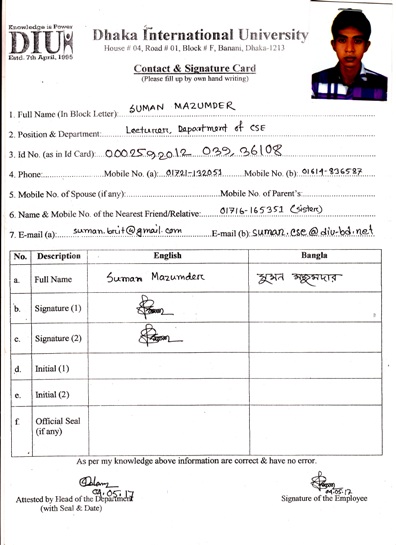 Knowledge is Power
DIU
Estd. 7th April, 1995
Dhaka International University
House # 04, Road # 01, Block # F, Banani, Dhaka-1213
Contact & Signature Card
(Please fill up by own hand writing)
1. Full Name (In Block Letter): SUMAN MAZUMDER
2. Position & Department: Lecturer, Department of CSE
3. Id No. (as in Id Card): 000259,2012 039, 36108
4. Phone: Mobile No. (a): 01721-132051 Mobile No. (b): 01614-836587
5. Mobile No. of Spouse (if any): Mobile No. of Parent's:
6. Name & Mobile No. of the Nearest Friend/Relative: 01716-165351 (Sister)
7. E-mail (a): suman.bnit@gmail.com E-mail (b): suman.cse@diu-bd.net
No. Description English Bangla
a. Full Name Suman Mazumder সুমন মজুমদার
b. Signature (1)
c. Signature (2)
d. Initial (1)
e. Initial (2)
f. Official Seal
(if any)
As per my knowledge above information are correct & have no error.
09.05.17
Attested by Head of the Department
(with Seal & Date)
09.05.17
Signature of the Employee